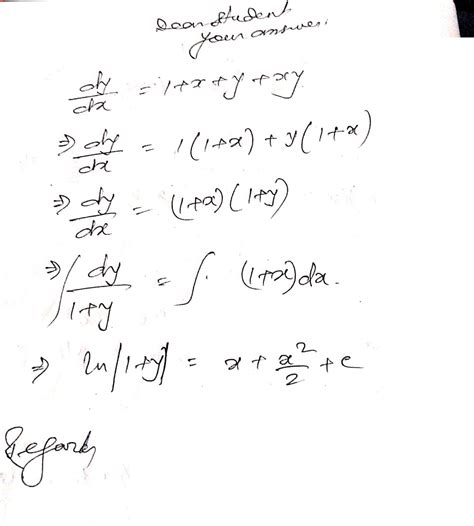 Dear student
your answer.
dy/dx = 1+x+y+xy
⇒ dy/dx = 1(1+x)+y(1+x)
⇒ dy/dx = (1+x)(1+y)
⇒ ∫ dy/1+y = ∫ (1+x)dx.
⇒ ln|1+y| = x + x²/2 + c
Regards